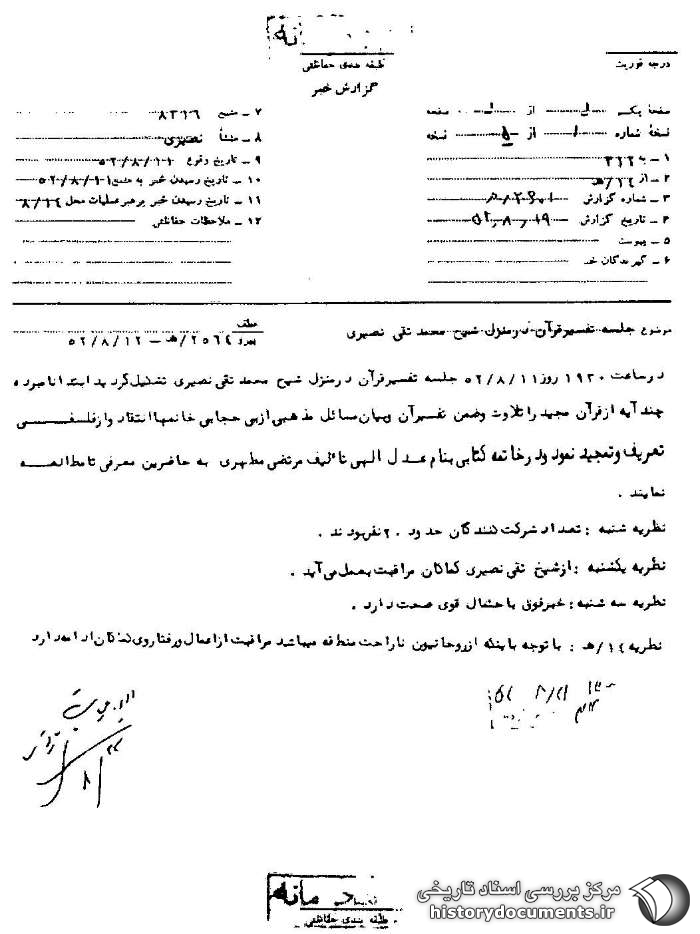 طبقه بندی حفاظتی
گزارش خبر
درجه فوریت
صفحه یک از صفحه
نسخه شماره ۱ از ۵ نسخه
۱ - به ۳۲۲
۲ - از ۱٤/هـ
۳ - شماره گزارش
۴ - تاریخ گزارش ۵۲٫۸٫۱۹
۵ - پیوست
۶ - گیرندگان خبر
۷ - منبع ۸۳۲٦
۸ - منشأ نصیری
۹ - تاریخ وقوع ۵۲/۸/۱۱
۱۰ - تاریخ رسیدن خبر به منبع ۵۲/۸/۱۱
۱۱ - تاریخ رسیدن خبر برهبر عملیات محل ۸/۱٤
۱۲ - ملاحظات حفاظتی
موضوع جلسه تفسیر قرآن در منزل شیخ محمد تقی نصیری
عطف
پیرو ۲۵٦٤/هـ - ۵۲/۸/۱۲
در ساعت ۱۹۳۰ روز ۵۲/۸/۱۱ جلسه تفسیر قرآن در منزل شیخ محمد تقی نصیری تشکیل گردید ابتدا نامبرده
چند آیه از قرآن مجید را تلاوت و ضمن تفسیر آن و بیان مسائل مذهبی از بی حجابی خانمها انتقاد و از فلسفی
تعریف و تمجید نمود و در خاتمه کتابی بنام عدل الهی تألیف مرتضی مطهری به حاضرین معرفی تا مطالعه
نمایند .
نظریه شنبه : تعداد شرکت کنندگان حدود ۲۰ نفر بودند .
نظریه یکشنبه : از شیخ تقی نصیری کماکان مراقبت بعمل می آید .
نظریه سه شنبه : خبر فوق با حتمال قوی صحت دارد .
نظریه ۱٤/هـ : با توجه باینکه از روحانیون ناراحت منطقه میباشد مراقبت از اعمال و رفتار وی کماکان ادامه دارد
طبقه بندی حفاظتی
مرکز بررسی اسناد تاریخی
historydocuments.ir